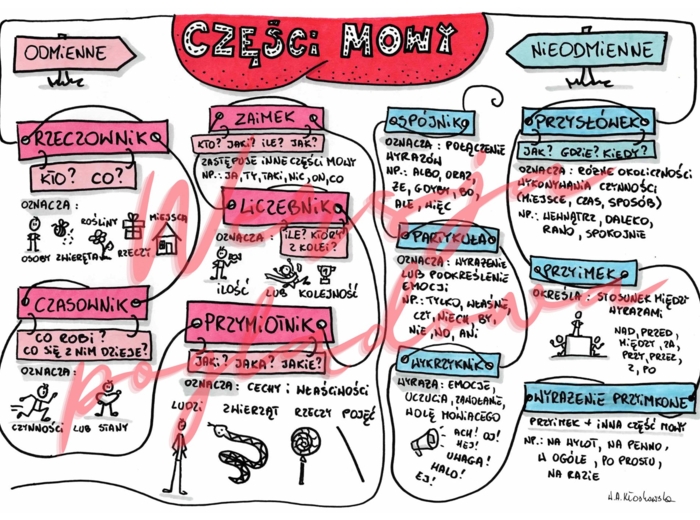 CZĘŚCI MOWY
ODMIENNE
NIEODMIENNE
RZECZOWNIK
KTO? CO?
OZNACZA:
ROŚLINY
MIEJSCA
OSOBY ZWIERZĘTA
RZECZY
CZASOWNIK
CO ROBI?
CO SIĘ Z NIM DZIEJE?
OZNACZA:
CZYNNOŚCI LUB STANY
ZAIMEK
KTO? JAKI? ILE? JAK?
ZASTĘPUJE INNE CZĘŚCI MOWY
NP.: JA, TY, TAKI, NIC, ON, CO
LICZEBNIK
OZNACZA:
ILE? KTÓRY
Z KOLEI?
ILOŚĆ LUB KOLEJNOŚĆ
PRZYMIOTNIK
JAKI? JAKA? JAKIE?
OZNACZA: CECHY I WŁAŚCIWOŚCI
LUDZI ZWIERZĄT RZECZY POJĘĆ
SPÓJNIK
OZNACZA: POŁĄCZENIE
WYRAZÓW
NP.: ALBO, ORAZ,
ŻE, GDYBY, BO,
ALE, WIĘC
PARTYKUŁA
OZNACZA: WYRAŻENIE
LUB PODKREŚLENIE
EMOCJI
NP.: TYLKO, WŁAŚNIE,
CZY, NIECH, BY,
NIE, NO, ANI
WYKRZYKNIK
WYRAŻA: EMOCJE,
UCZUCIA, ZAWOŁANIE,
WOLĘ MÓWIĄCEGO
ACH! OJ!
HEJ!
UWAGA!
HALO!
EJ!
PRZYSŁÓWEK
JAK? GDZIE? KIEDY?
OZNACZA: RÓŻNE OKOLICZNOŚCI
WYKONYWANIA CZYNNOŚCI
(MIEJSCE, CZAS, SPOSÓB)
NP.: WEWNĄTRZ, DALEKO,
RANO, SPOKOJNIE
PRZYIMEK
OKREŚLA: STOSUNEK MIĘDZY
WYRAZAMI
NAD, PRZED,
MIĘDZY, ZA,
PRZY, PRZEZ,
Z, PO
WYRAŻENIE PRZYIMKOWE
PRZYIMEK + INNA CZĘŚĆ MOWY
NP.: NA WYLOT, NA PEWNO,
W OGÓLE, PO PROSTU,
NA RAZIE